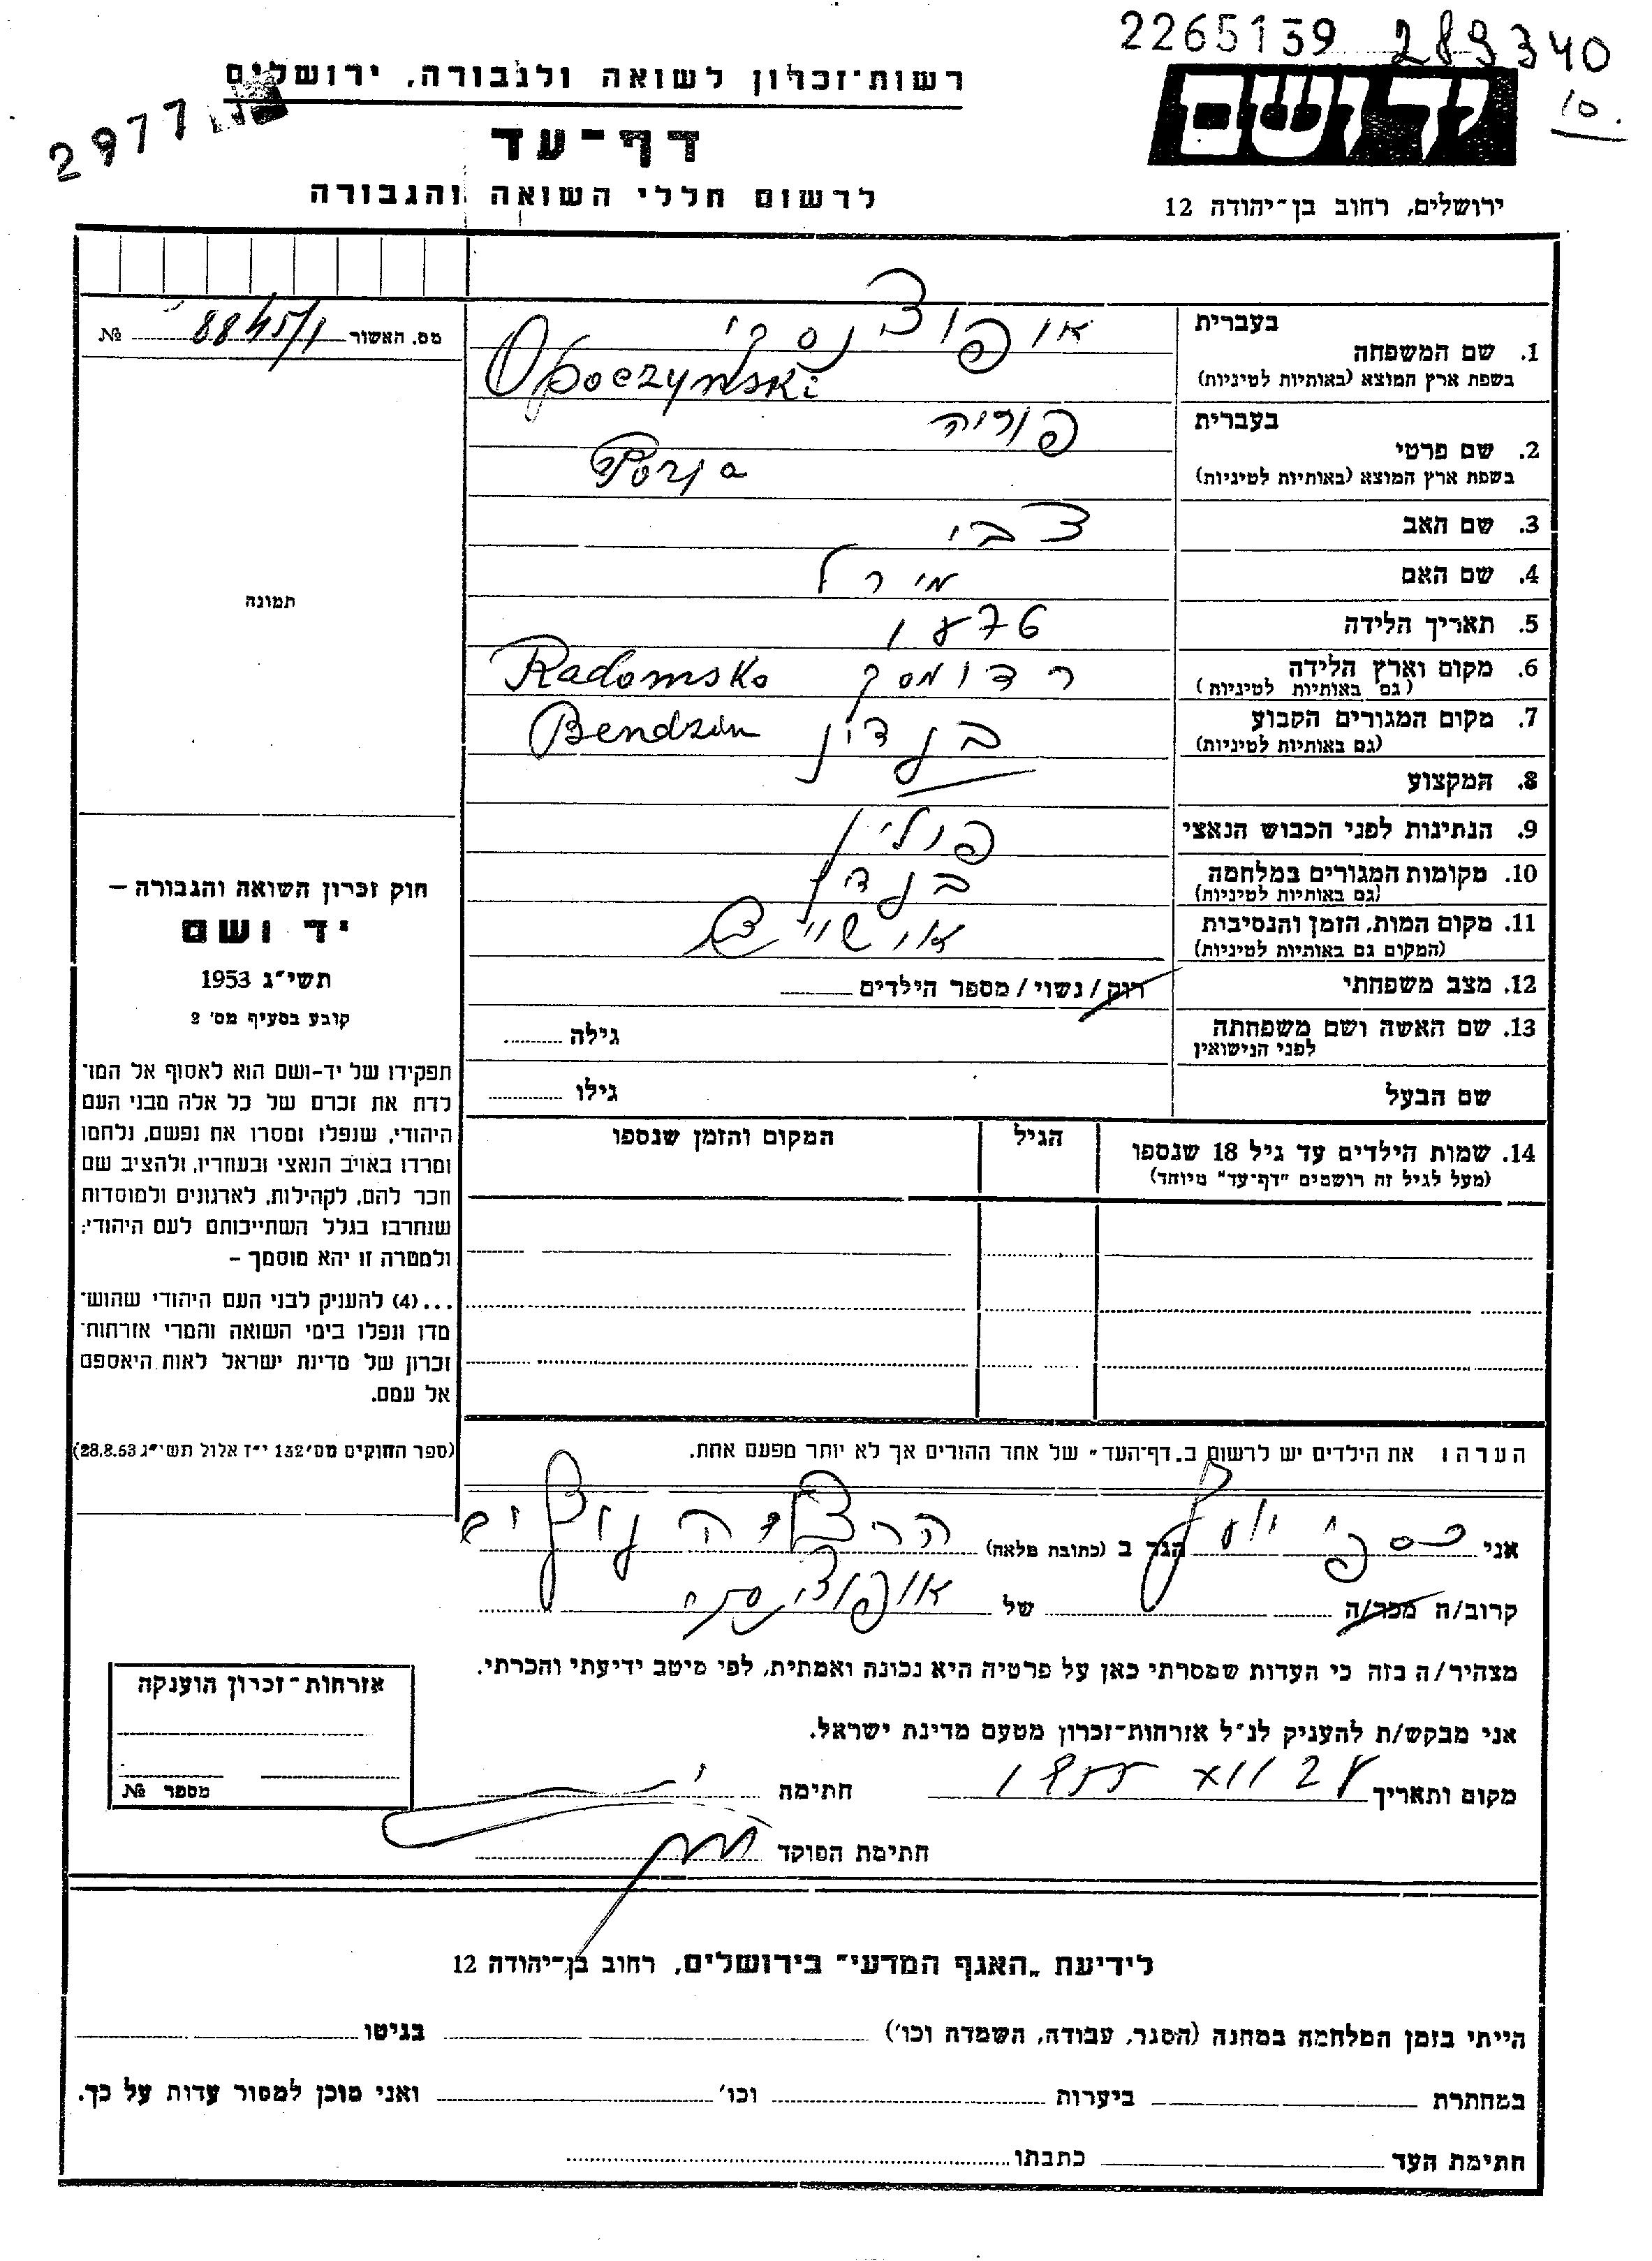 2265139 289340
10
2977
רשות־זכרון לשואה ולגבורה, ירושלים
יד ושם
דף־עד
לרשום חללי השואה והגבורה
ירושלים, רחוב בן־יהודה 12
מס. האשור № 8845/1
1. שם המשפחה
בעברית אופוצ'נסקי
בשפת ארץ המוצא (באותיות לטיניות) Opoczynski
2. שם פרטי
בעברית פוריה
בשפת ארץ המוצא (באותיות לטיניות) Porja
3. שם האב צבי
4. שם האם מירל
5. תאריך הלידה 1876
6. מקום וארץ הלידה רדומסק Radomsko
(גם באותיות לטיניות)
7. מקום המגורים הקבוע בנדין Bendzin
(גם באותיות לטיניות)
8. המקצוע
9. הנתינות לפני הכבוש הנאצי פולין
10. מקומות המגורים במלחמה בנדין
(גם באותיות לטיניות)
11. מקום המות, הזמן והנסיבות
(המקום גם באותיות לטיניות)
12. מצב משפחתי רווק/נשוי/מספר הילדים
13. שם האשה ושם משפחתה גילה
לפני הנישואין
שם הבעל גילו
14. שמות הילדים עד גיל 18 שנספו הגיל המקום והזמן שנספו
(מעל לגיל זה רושמים "דף־עד" מיוחד)
תמונה
חוק זכרון השואה והגבורה –
יד ושם
תשי"ג 1953
קובע בסעיף מס' 2
תפקידו של יד-ושם הוא לאסוף אל המו־
לדת את זכרם של כל אלה מבני העם
היהודי, שנפלו ומסרו את נפשם, נלחמו
ומרדו באויב הנאצי ובעוזריו, ולהציב שם
וזכר להם, לקהילות, לארגונים ולמוסדות
שנחרבו בגלל השתייכותם לעם היהודי;
ולמטרה זו יהא מוסמך –
...(4) להעניק לבני העם היהודי שהוש־
מדו ונפלו בימי השואה והמרי אזרחות־
זכרון של מדינת ישראל לאות היאספם
אל עמם.
(ספר החוקים מס' 132 י"ז אלול תשי"ג 28.8.53)
הערה: את הילדים יש לרשום ב„דף־העד" של אחד ההורים אך לא יותר מפעם אחת.
אני כספי יוסף הגר ב (כתובת מלאה) הרצליה
קרוב/ה מכר/ה של אופוצ'נסקי
מצהיר/ה בזה כי העדות שמסרתי כאן על פרטיה היא נכונה ואמתית, לפי מיטב ידיעתי והכרתי.
אני מבקש/ת להעניק לנ"ל אזרחות־זכרון מטעם מדינת ישראל.
מקום ותאריך חתימה
חתימת הפוקד
אזרחות־זכרון הוענקה
מספר №
לידיעת „האגף המדעי" בירושלים, רחוב בן־יהודה 12
הייתי בזמן המלחמה במחנה (הסגר, עבודה, השמדה וכו') בגיטו
במחתרת ביערות וכו' ואני מוכן למסור עדות על כך.
חתימת העד כתבתו